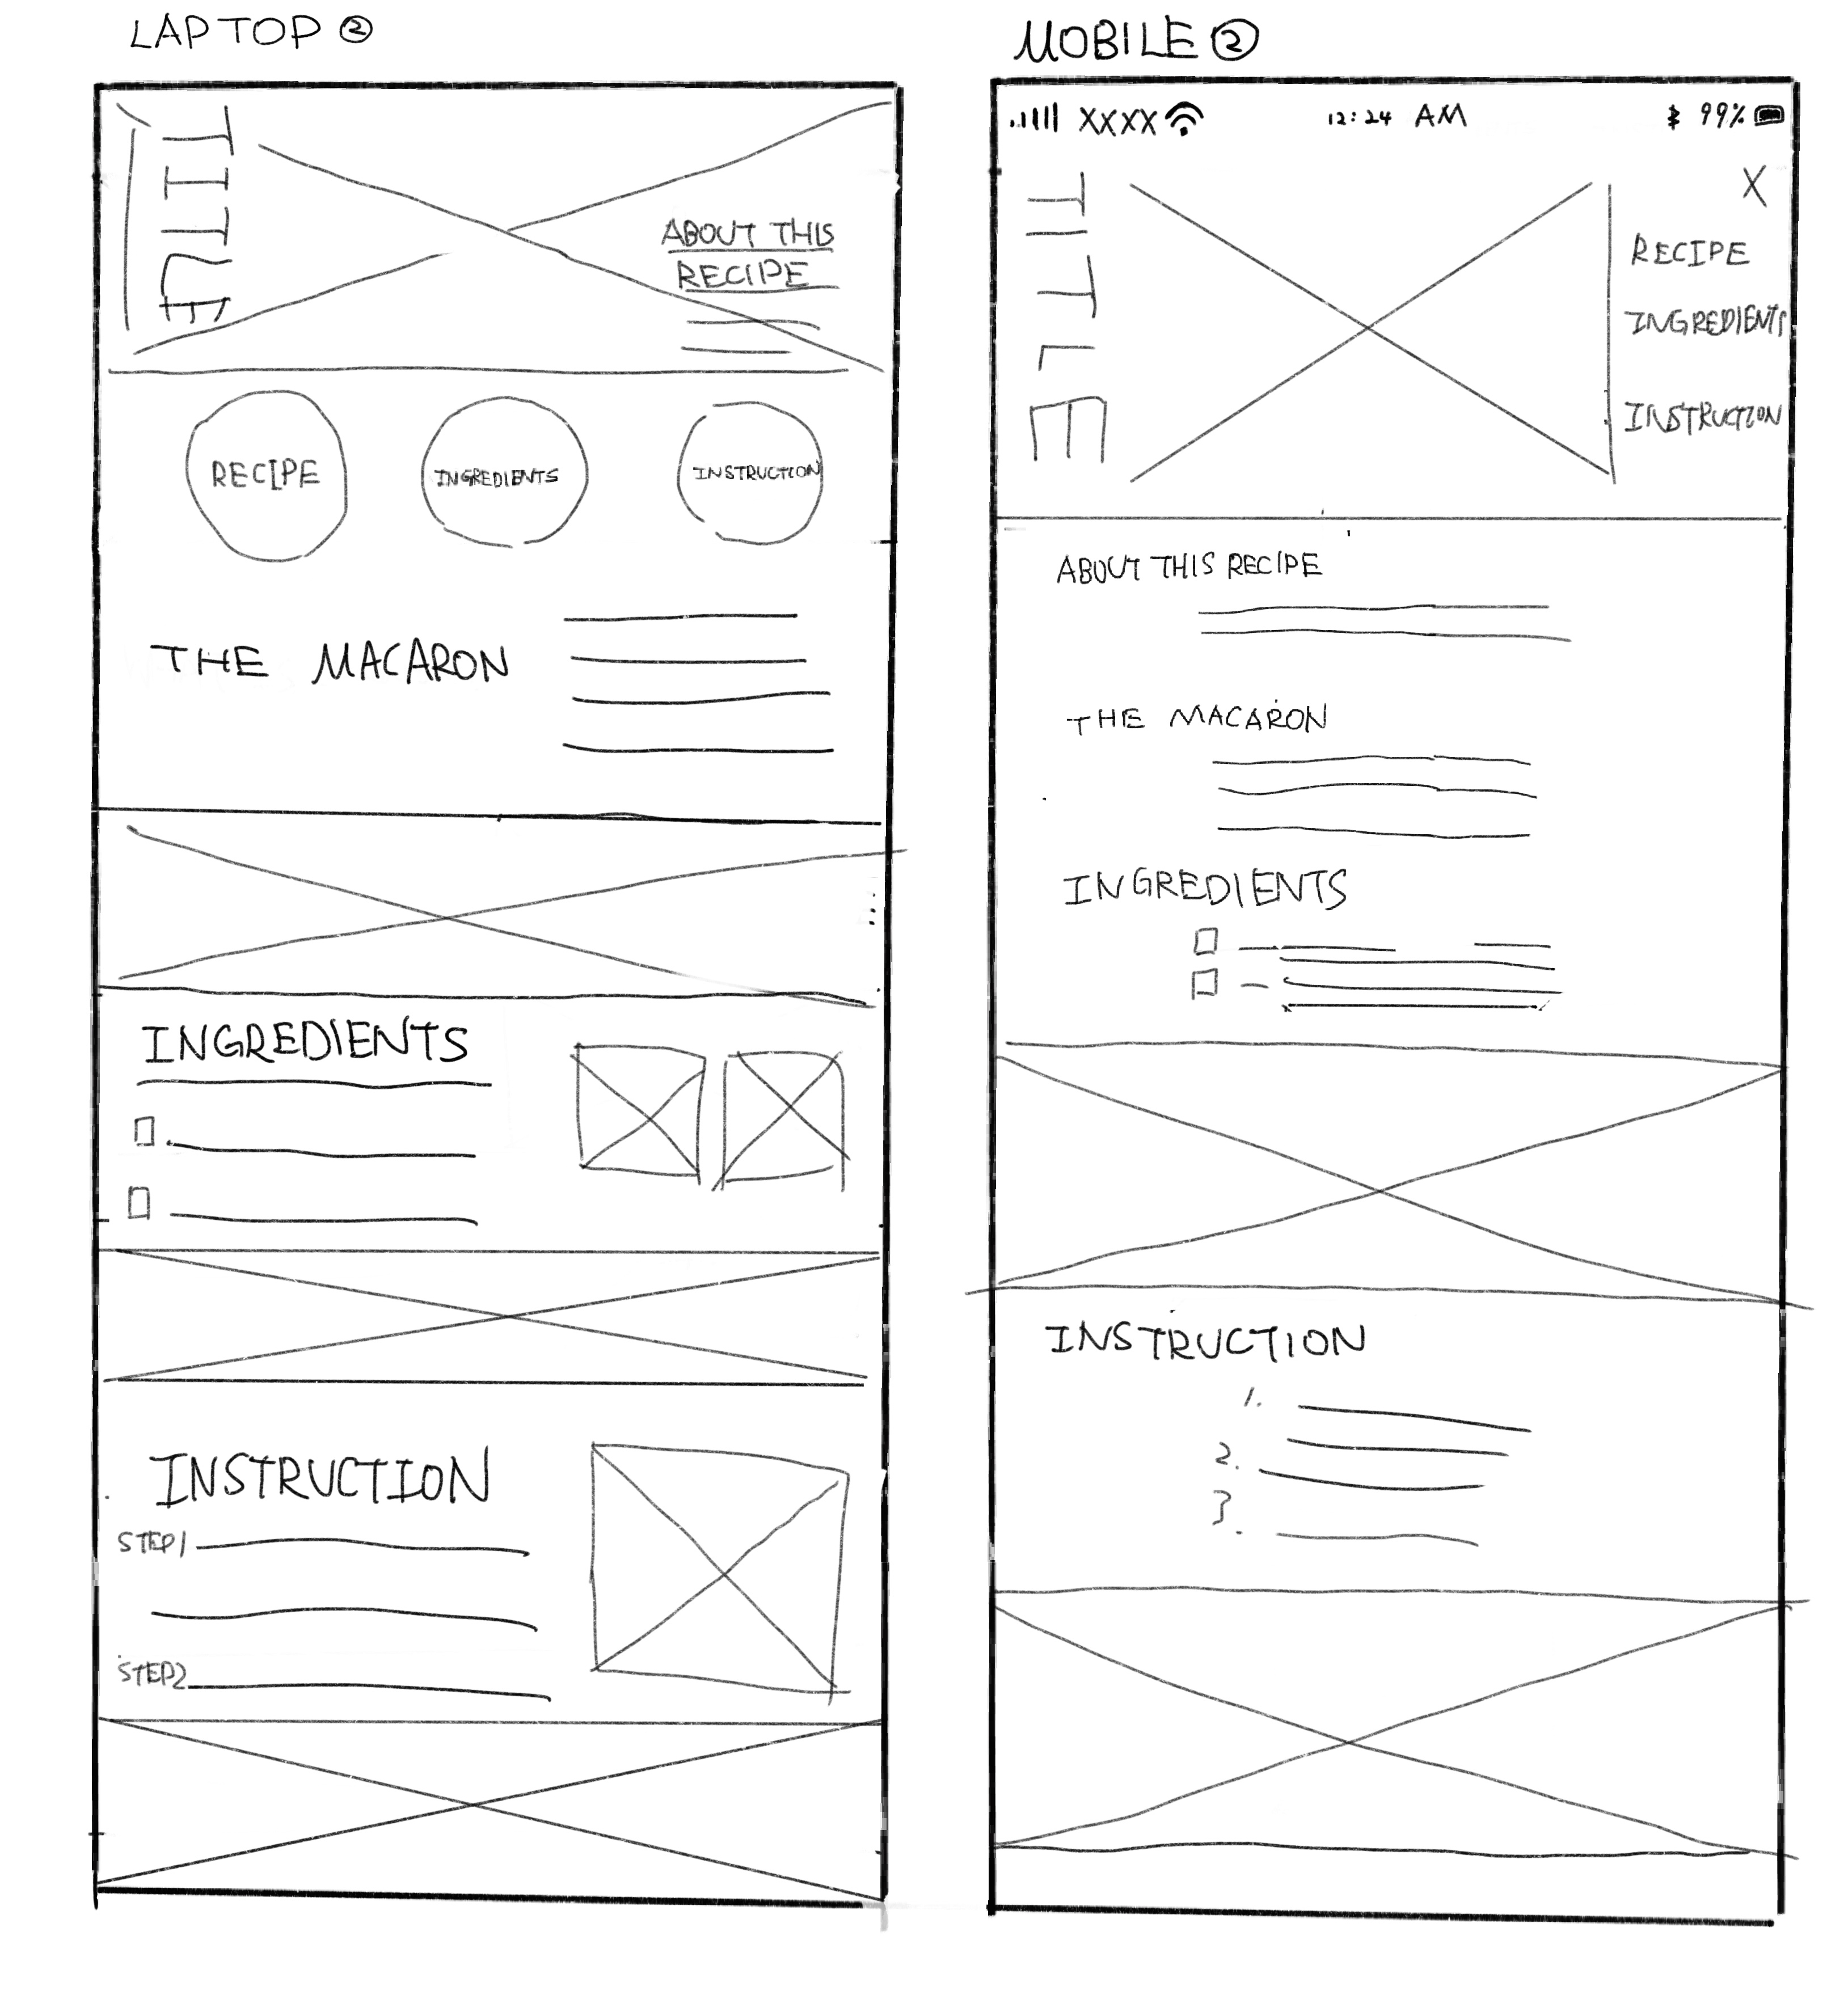 LAPTOP ②
TITLE
ABOUT THIS
RECIPE
RECIPE
INGREDIENTS
INSTRUCTION
THE MACARON
INGREDIENTS
INSTRUCTION
STEP1
STEP2
MOBILE ②
XXXX 12:24 AM 99%
TITLE
X
RECIPE
INGREDIENTS
INSTRUCTION
ABOUT THIS RECIPE
THE MACARON
INGREDIENTS
INSTRUCTION
1.
2.
3.